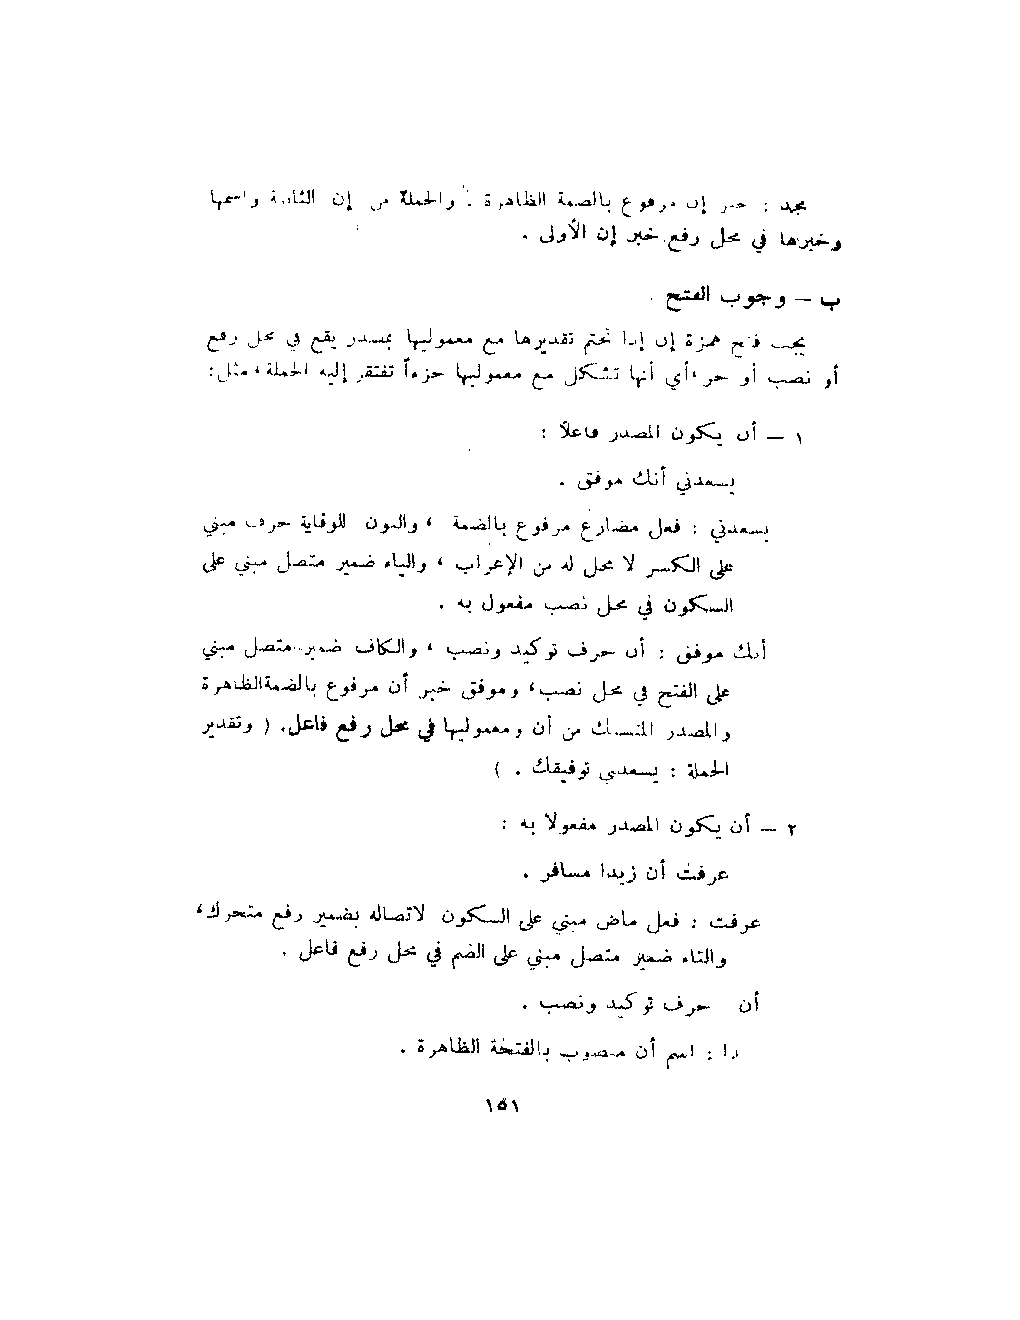 مجد : خبر إن مرفوع بالضمة الظاهرة . والجملة من إن الثانية واسمها
وخبرها في محل رفع خبر إن الأولى .
ب – وجوب الفتح .
يجب فتح همزة إن إذا تحتم تقديرها مع معموليها بمصدر يقع في محل رفع
أو نصب أو جر ، أي أنها تشكل مع معموليها جزءاً تفتقر إليه الجملة ، مثل :
١ – أن يكون المصدر فاعلاً :
يسعدني أنك موفق .
يسعدني : فعل مضارع مرفوع بالضمة ، والنون للوقاية حرف مبني
على الكسر لا محل له من الإعراب ، والياء ضمير متصل مبني على
السكون في محل نصب مفعول به .
أنك موفق : أن حرف توكيد ونصب ، والكاف ضمير متصل مبني
على الفتح في محل نصب ، وموفق خبر أن مرفوع بالضمة الظاهرة
والمصدر المنسبك من أن ومعموليها في محل رفع فاعل . ( وتقدير
الجملة : يسعدني توفيقك . )
٢ – أن يكون المصدر مفعولا به :
عرفت أن زيدا مسافر .
عرفت : فعل ماض مبني على السكون لاتصاله بضمير رفع متحرك ،
والتاء ضمير متصل مبني على الضم في محل رفع فاعل .
أن حرف توكيد ونصب .
دا : اسم أن منصوب بالفتحة الظاهرة .
١٥١